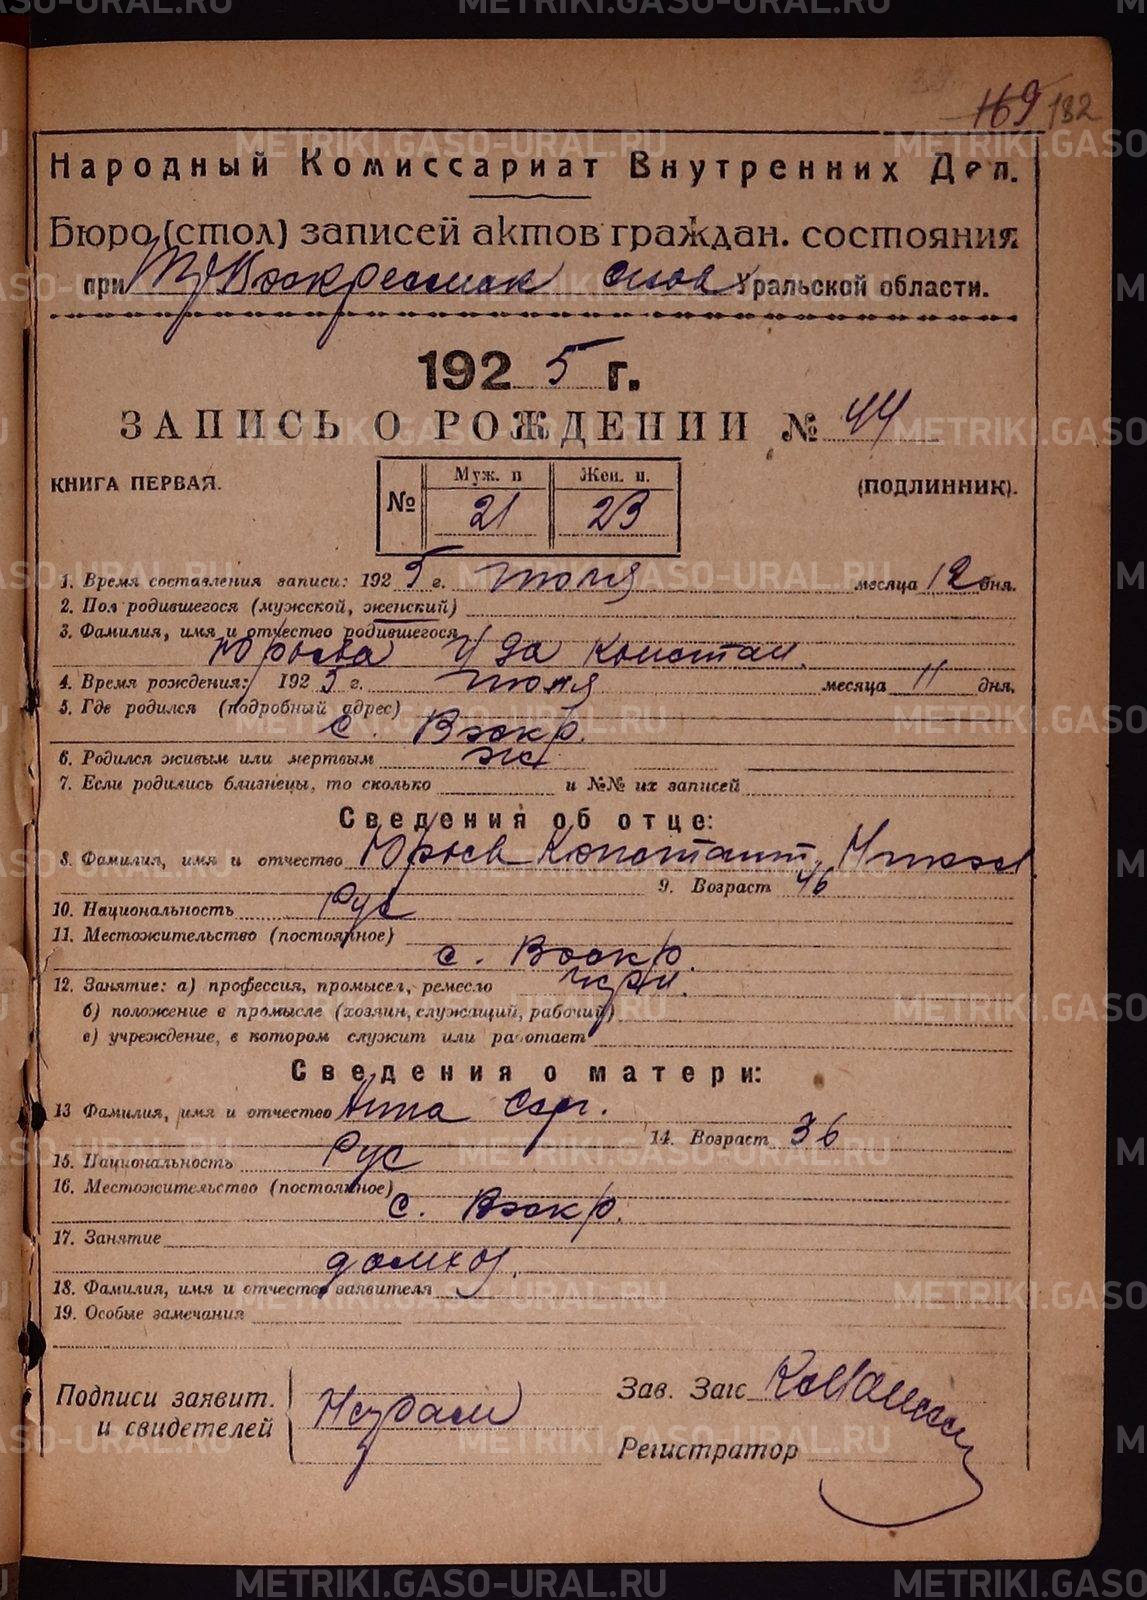 169 182
Народный Комиссариат Внутренних Дел.
Бюро (стол) записей актов граждан. состояния
при Воскресенск Уральской области.
1925 г.
ЗАПИСЬ О РОЖДЕНИИ № 44
КНИГА ПЕРВАЯ. (ПОДЛИННИК).
№ Муж. п Жен. п.
21 23
1. Время составления записи: 1925 г. июля месяца 12 дня.
2. Пол родившегося (мужской, женский)
3. Фамилия, имя и отчество родившегося
Юрьева Ида Констан.
4. Время рождения: 1925 г. июля месяца 11 дня.
5. Где родился (подробный адрес)
с. Вскр.
6. Родился живым или мертвым жи
7. Если родились близнецы, то сколько и №№ их записей
Сведения об отце:
8. Фамилия, имя и отчество Юрьев Константи
9. Возраст 46
10. Национальность Рус
11. Местожительство (постоянное)
с. Воскр.
12. Занятие: а) профессия, промысел, ремесло
б) положение в промысле (хозяин, служащий, рабочий)
в) учреждение, в котором служит или работает
Сведения о матери:
13 Фамилия, имя и отчество Анна Серг.
14. Возраст 36
15. Национальность Рус
16. Местожительство (постоянное)
с. Вскр.
17. Занятие
домхоз.
18. Фамилия, имя и отчество заявителя
19. Особые замечания
Подписи заявит.
и свидетелей
Неграм
Зав. Загс
Регистратор
METRIKI.GASO-URAL.RU